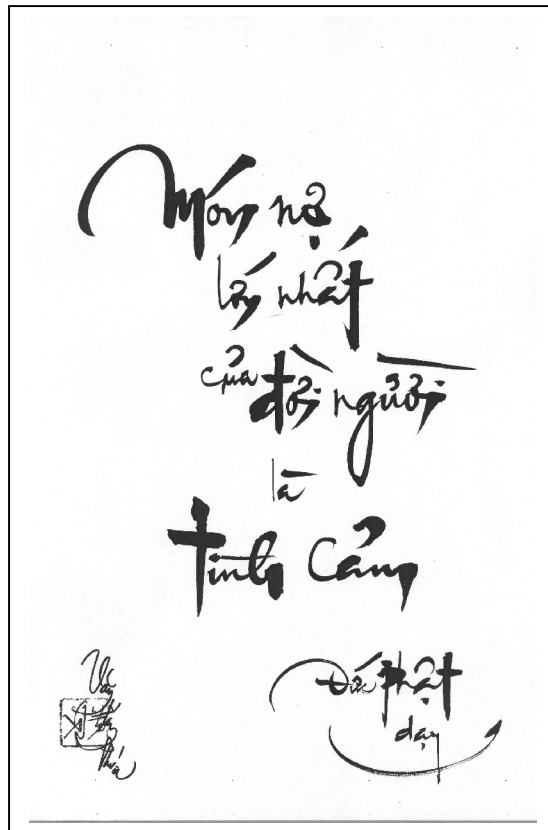 Món nợ
lớn nhất
của đời người
là
tình cảm
Đức Phật
dạy